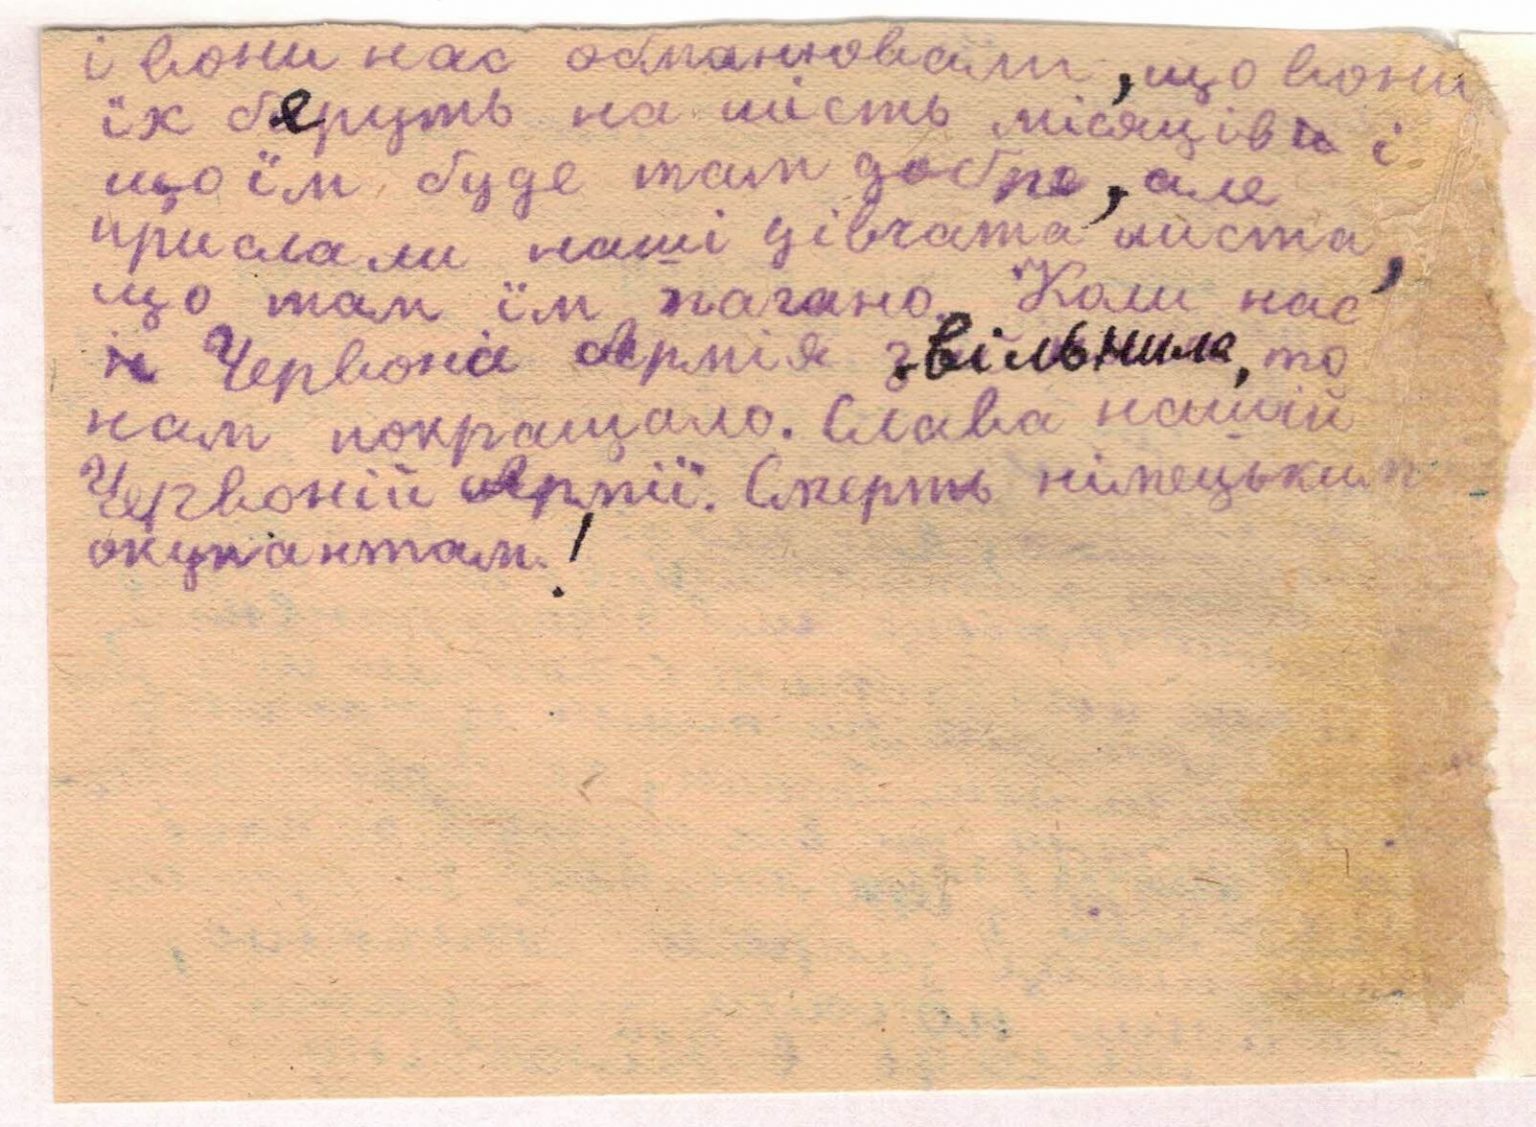 і вони нас обманювали, що вони
їх беруть на шість місяців і
що їм буде там добре, але
прислали наші дівчата листа,
що там їм погано. Коли нас
Червона Армія звільнила, то
нам покращало. Слава нашій
Червоній Армії. Смерть німецьким
окупантам!